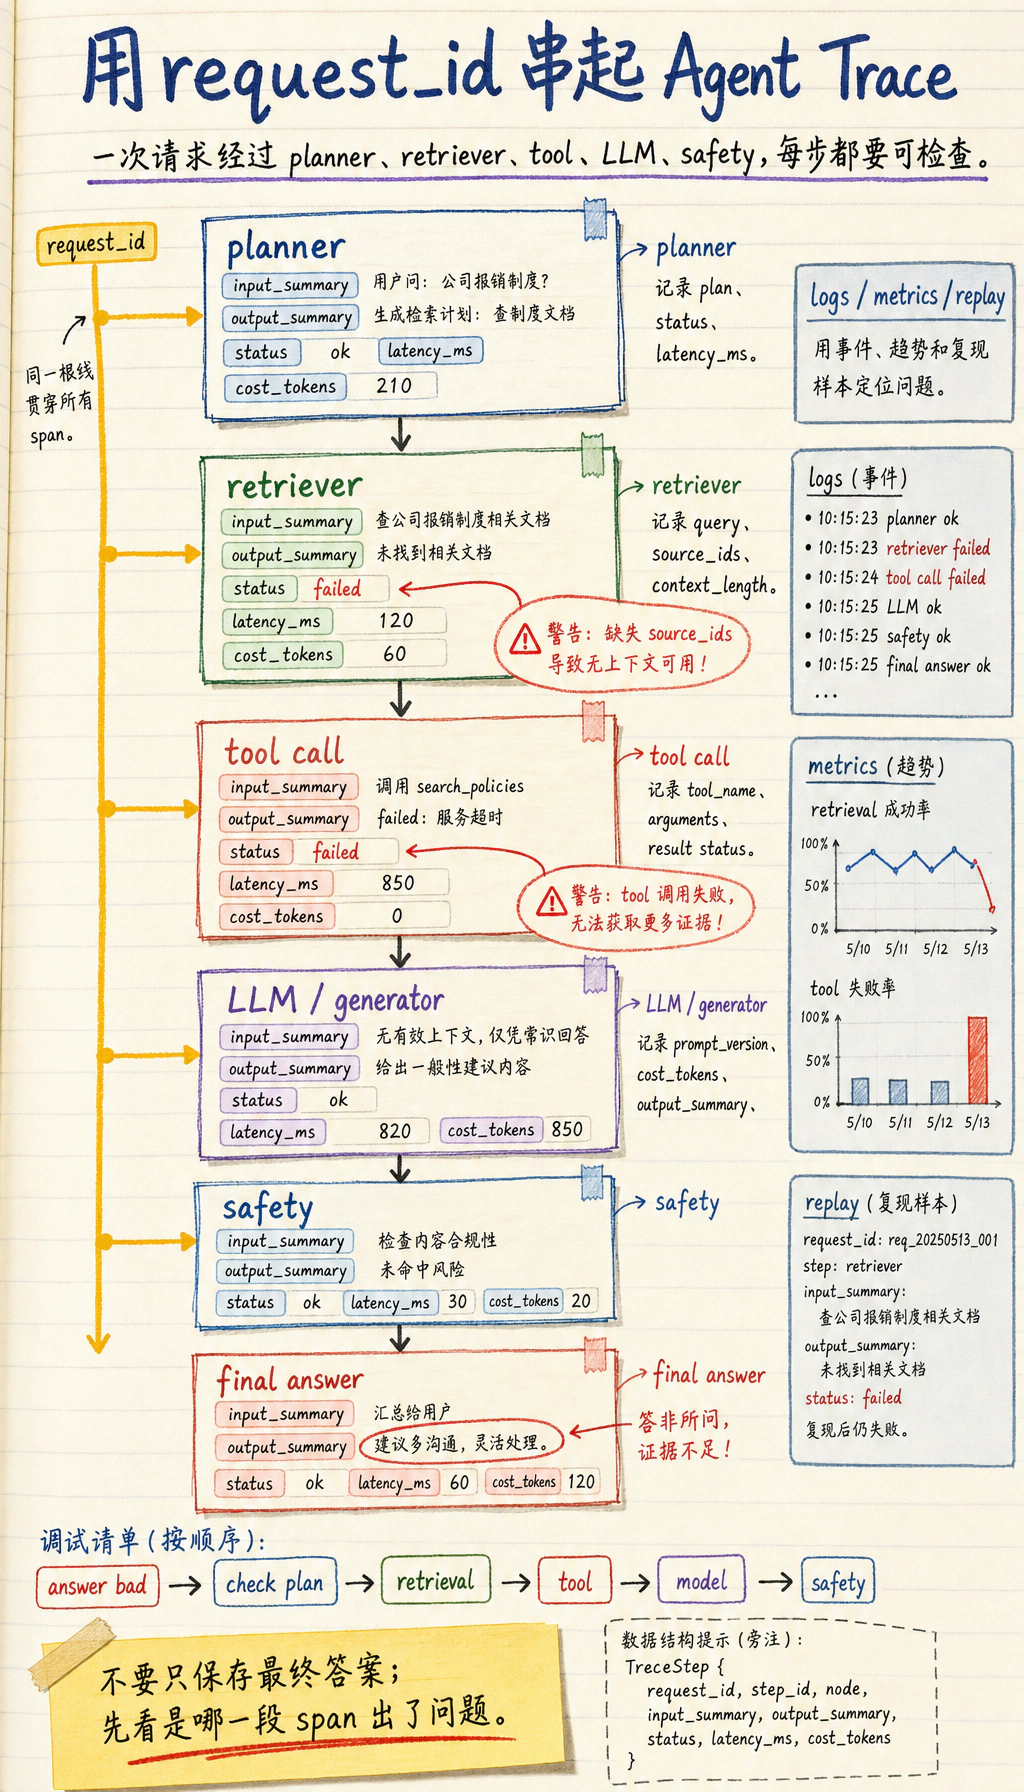 用 request_id 串起 Agent Trace
一次请求经过 planner、retriever、tool、LLM、safety，每步都要可检查。
request_id
同一根线
贯穿所有
span。
planner
input_summary 用户问：公司报销制度？
output_summary 生成检索计划：查制度文档
status ok latency_ms
cost_tokens 210
planner
记录 plan、
status、
latency_ms。
retriever
input_summary 查公司报销制度相关文档
output_summary 未找到相关文档
status failed
latency_ms 120
cost_tokens 60
警告：缺失 source_ids
导致无上下文可用！
retriever
记录 query、
source_ids、
context_length。
tool call
input_summary 调用 search_policies
output_summary failed：服务超时
status failed
latency_ms 850
cost_tokens 0
警告：tool 调用失败，
无法获取更多证据！
tool call
记录 tool_name、
arguments、
result status。
LLM / generator
input_summary 无有效上下文，仅凭常识回答
output_summary 给出一般性建议内容
status ok
latency_ms 820 cost_tokens 850
LLM / generator
记录 prompt_version、
cost_tokens、
output_summary、
safety
input_summary 检查内容合规性
output_summary 未命中风险
status ok latency_ms 30 cost_tokens 20
safety
final answer
input_summary 汇总给用户
output_summary 建议多沟通，灵活处理。
status ok latency_ms 60 cost_tokens 120
final answer
答非所问，
证据不足！
logs / metrics / replay
用事件、趋势和复现
样本定位问题。
logs（事件）
• 10:15:23 planner ok
• 10:15:23 retriever failed
• 10:15:24 tool call failed
• 10:15:25 LLM ok
• 10:15:25 safety ok
• 10:15:25 final answer ok
...
metrics（趋势）
retrieval 成功率
100%
50%
0%
5/10 5/11 5/12 5/13
tool 失败率
100%
50%
0%
5/10 5/11 5/12 5/13
replay（复现样本）
request_id: req_20250513_001
step: retriever
input_summary:
查公司报销制度相关文档
output_summary:
未找到相关文档
status: failed
复现后仍失败。
调试请单（按顺序）：
answer bad → check plan → retrieval → tool → model → safety
不要只保存最终答案；
先看是哪一段 span 出了问题。
数据结构提示（旁注）：
TreceStep {
request_id, step_id, node,
input_summary, output_summary,
status, latency_ms, cost_tokens
}